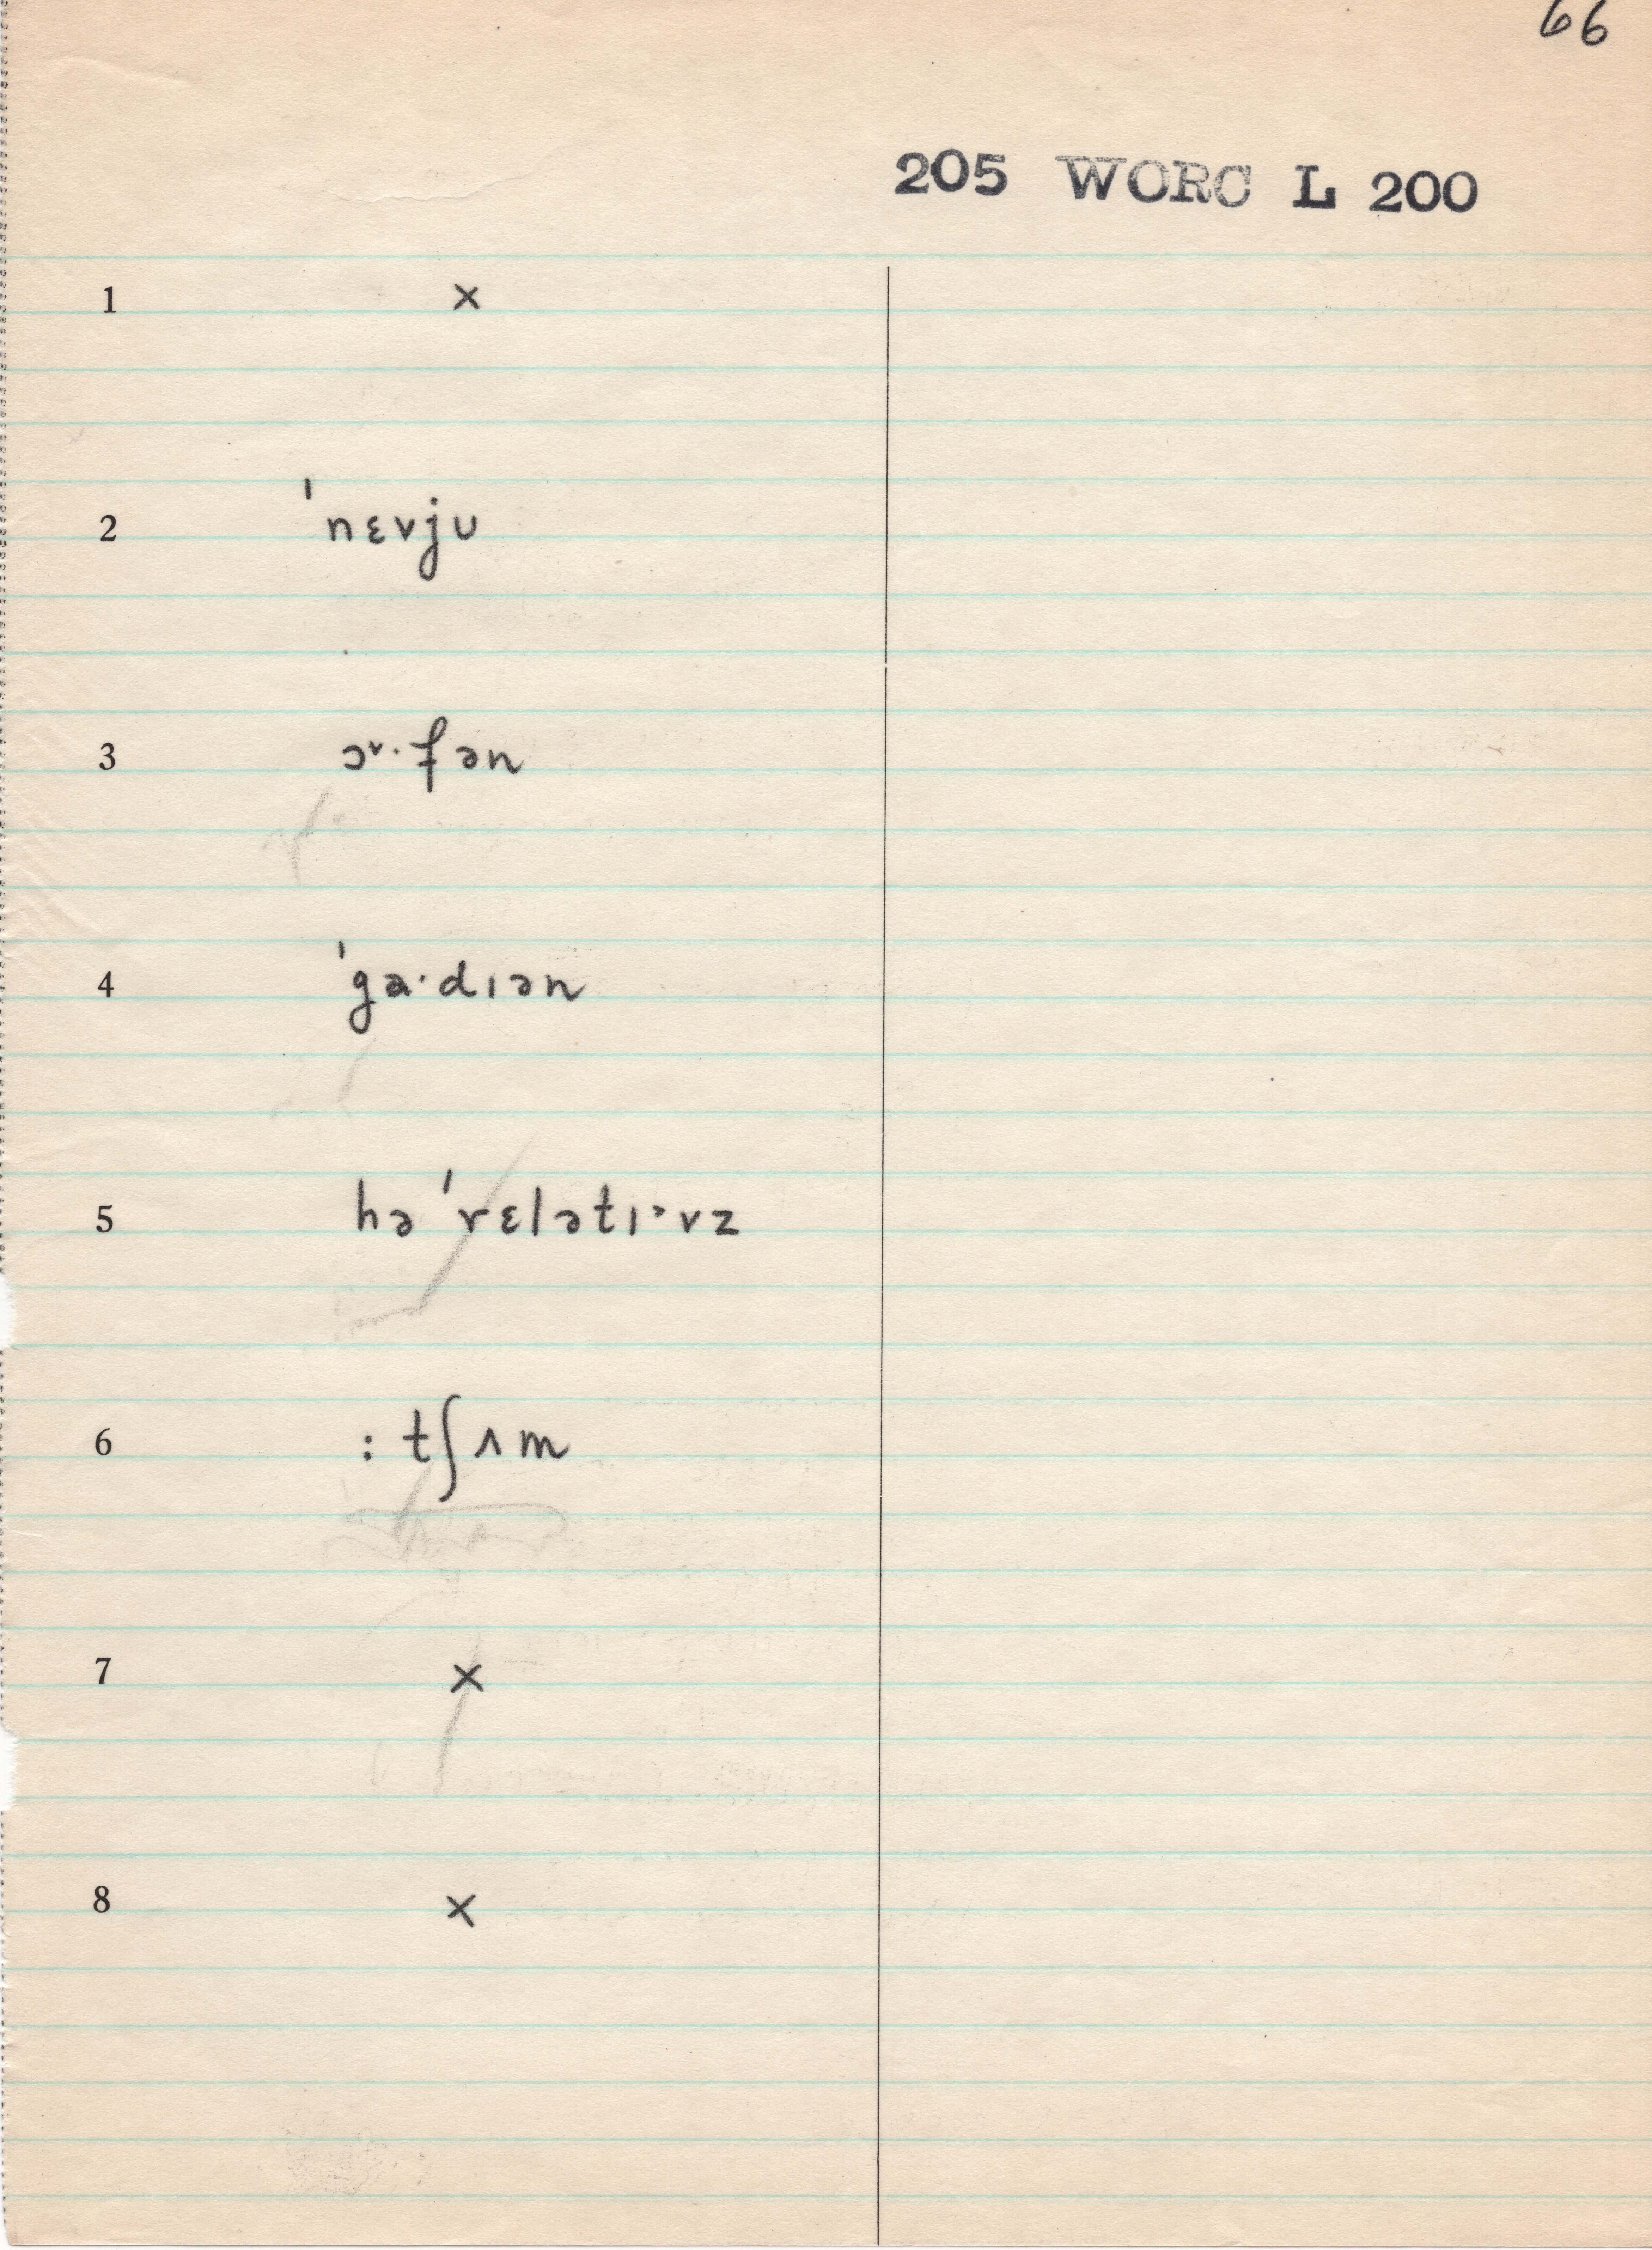 66
205 WORC L 200
1 ×
2 ˈnɛvjʊ
3 ɔᵛ·fən
4 ˈga·dɪən
5 hə ˈrɛlətɪ˃vz
6 : tʃʌm
7 ×
8 ×